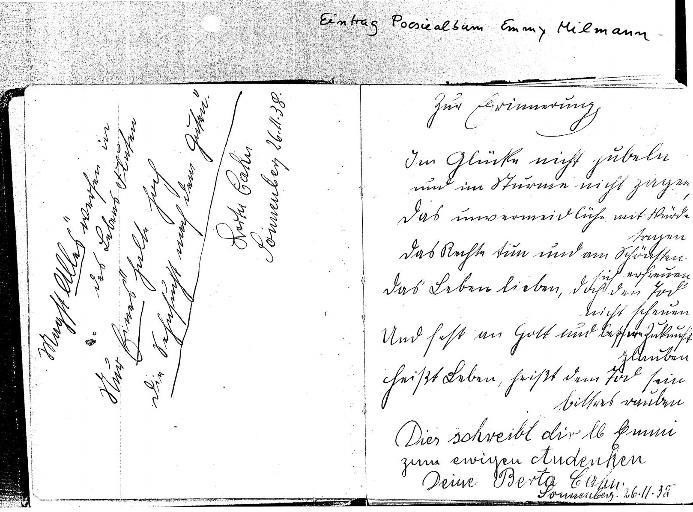 Eintrag Poesiealbum Emmy Milmann
Magst "Alles" werfen in
des Lebens Fluten
Nur "Eines" halte fest
die Sehnsucht nach dem Guten."
Berta Cahn
Sonnenberg 26.11.38.
Zur Erinnerung
Im Glücke nicht jubeln
und im Sturme nicht zagen,
das unvermeidliche mit Würde
tragen
das Rechte tun und am Schönsten
sich erfreuen
das Leben lieben, doch den Tod
nicht scheuen
Und fest an Gott und bessere Zukunft
glauben
heißt Leben, heißt dem Tod sein
bittres rauben
Dies schreibt dir lb Emmi
zum ewigen Andenken
Deine Berta Cahn.
Sonnenberg. 26.11.38